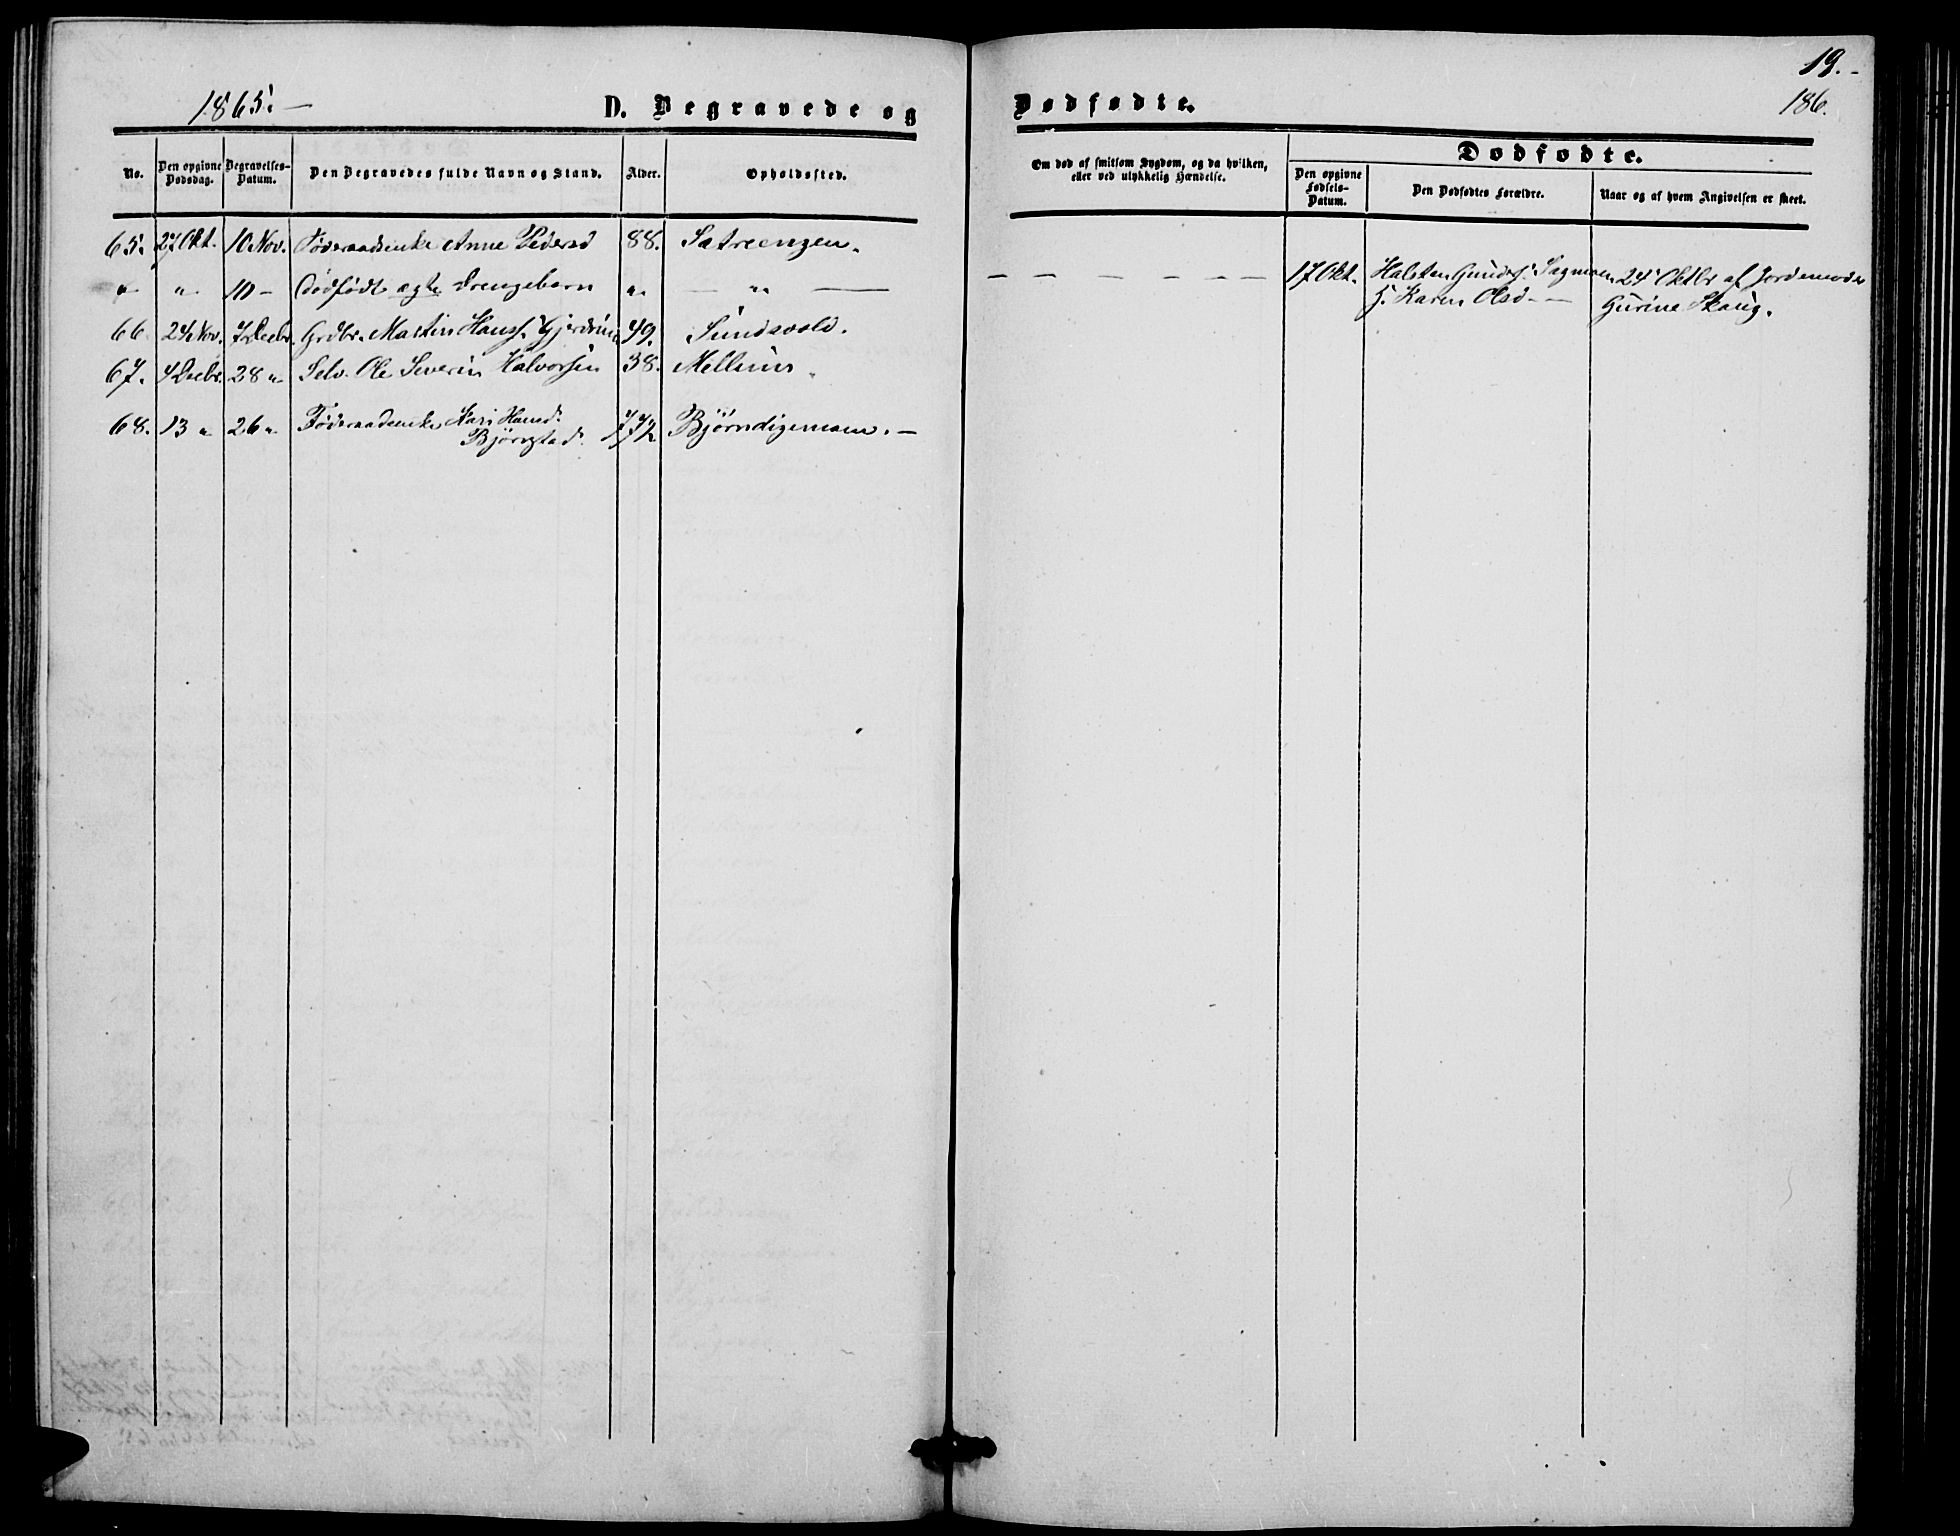 19.-
1865.- D. Begravede og Dødfødte. 186.
No. Den opgivne Dødsdag. Begravelses-Datum. Den Begravedes fulde Navn og Stand. Alder. Opholdssted. Om død af smitsom Sygdom, og da hvilken, eller ved ulykkelig Hændelse. Dødfødte.
Den opgivne Fødsels-Datum. Den Dødfødtes Forældre. Naar og af hvem Angivelsen er skeet.
65. 27 Okt. 10 Nov. Föderaadsenke Anne Pedersd 88. Sætreengen.
" " 10 - Dödfödt ægte Drengebarn " — " — — — — — — — — 17 Okt. Halsten Gunders. Sagmoen 24 Oktbr af Jordemoder
H. Karen Olsd - - Gurine Skaug.
66. 24 Nov. 7 Decbr. Grdbr. Martin Hanss. Gjerdrum 49. Sundsvold.
67. 4 Decbr. 28 " Selv. Ole Severin Halvorsen 38. Mellum
68. 13 " 26 " Föderaadsenke Kari Hansd. Björnstad. 77½ Björndigemoen. -